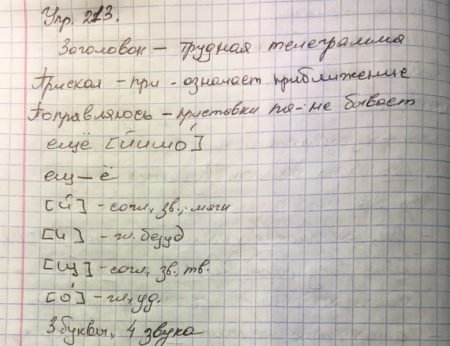 Упр. 213.
Заголовок – трудная телеграмма
Приехал – при - означает приближение
Поправляюсь – приставки па- не бывает
ещё [йищо́]
ещ–ё
[й] - согл., зв., мягк
[и] - гл. безуд
[щ] - согл, зв. тв.
[о́] - гл., уд.
3 буквы, 4 звука